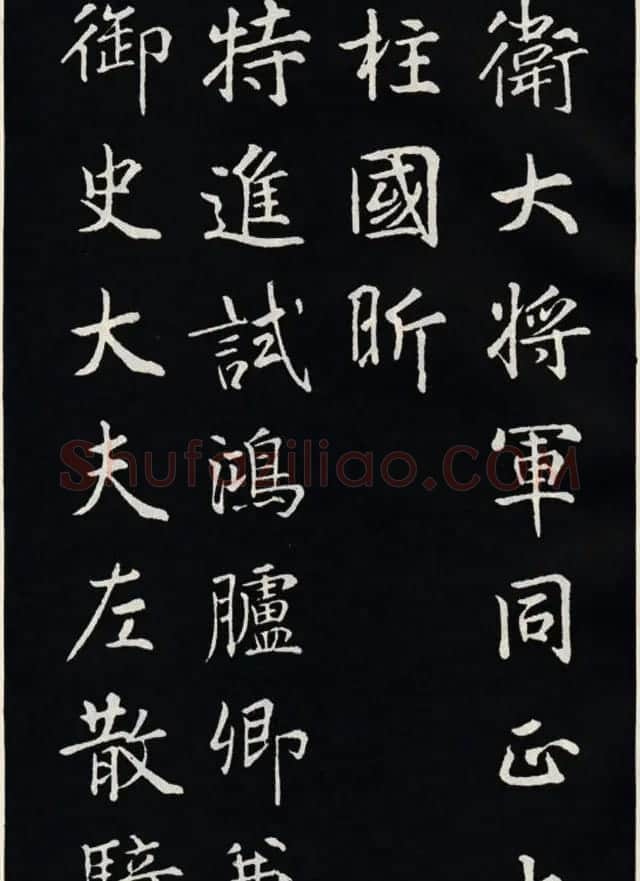 衛大將軍同正
柱國昕
特進試鴻臚卿
御史大夫左散騎
Shufaziliao.COM